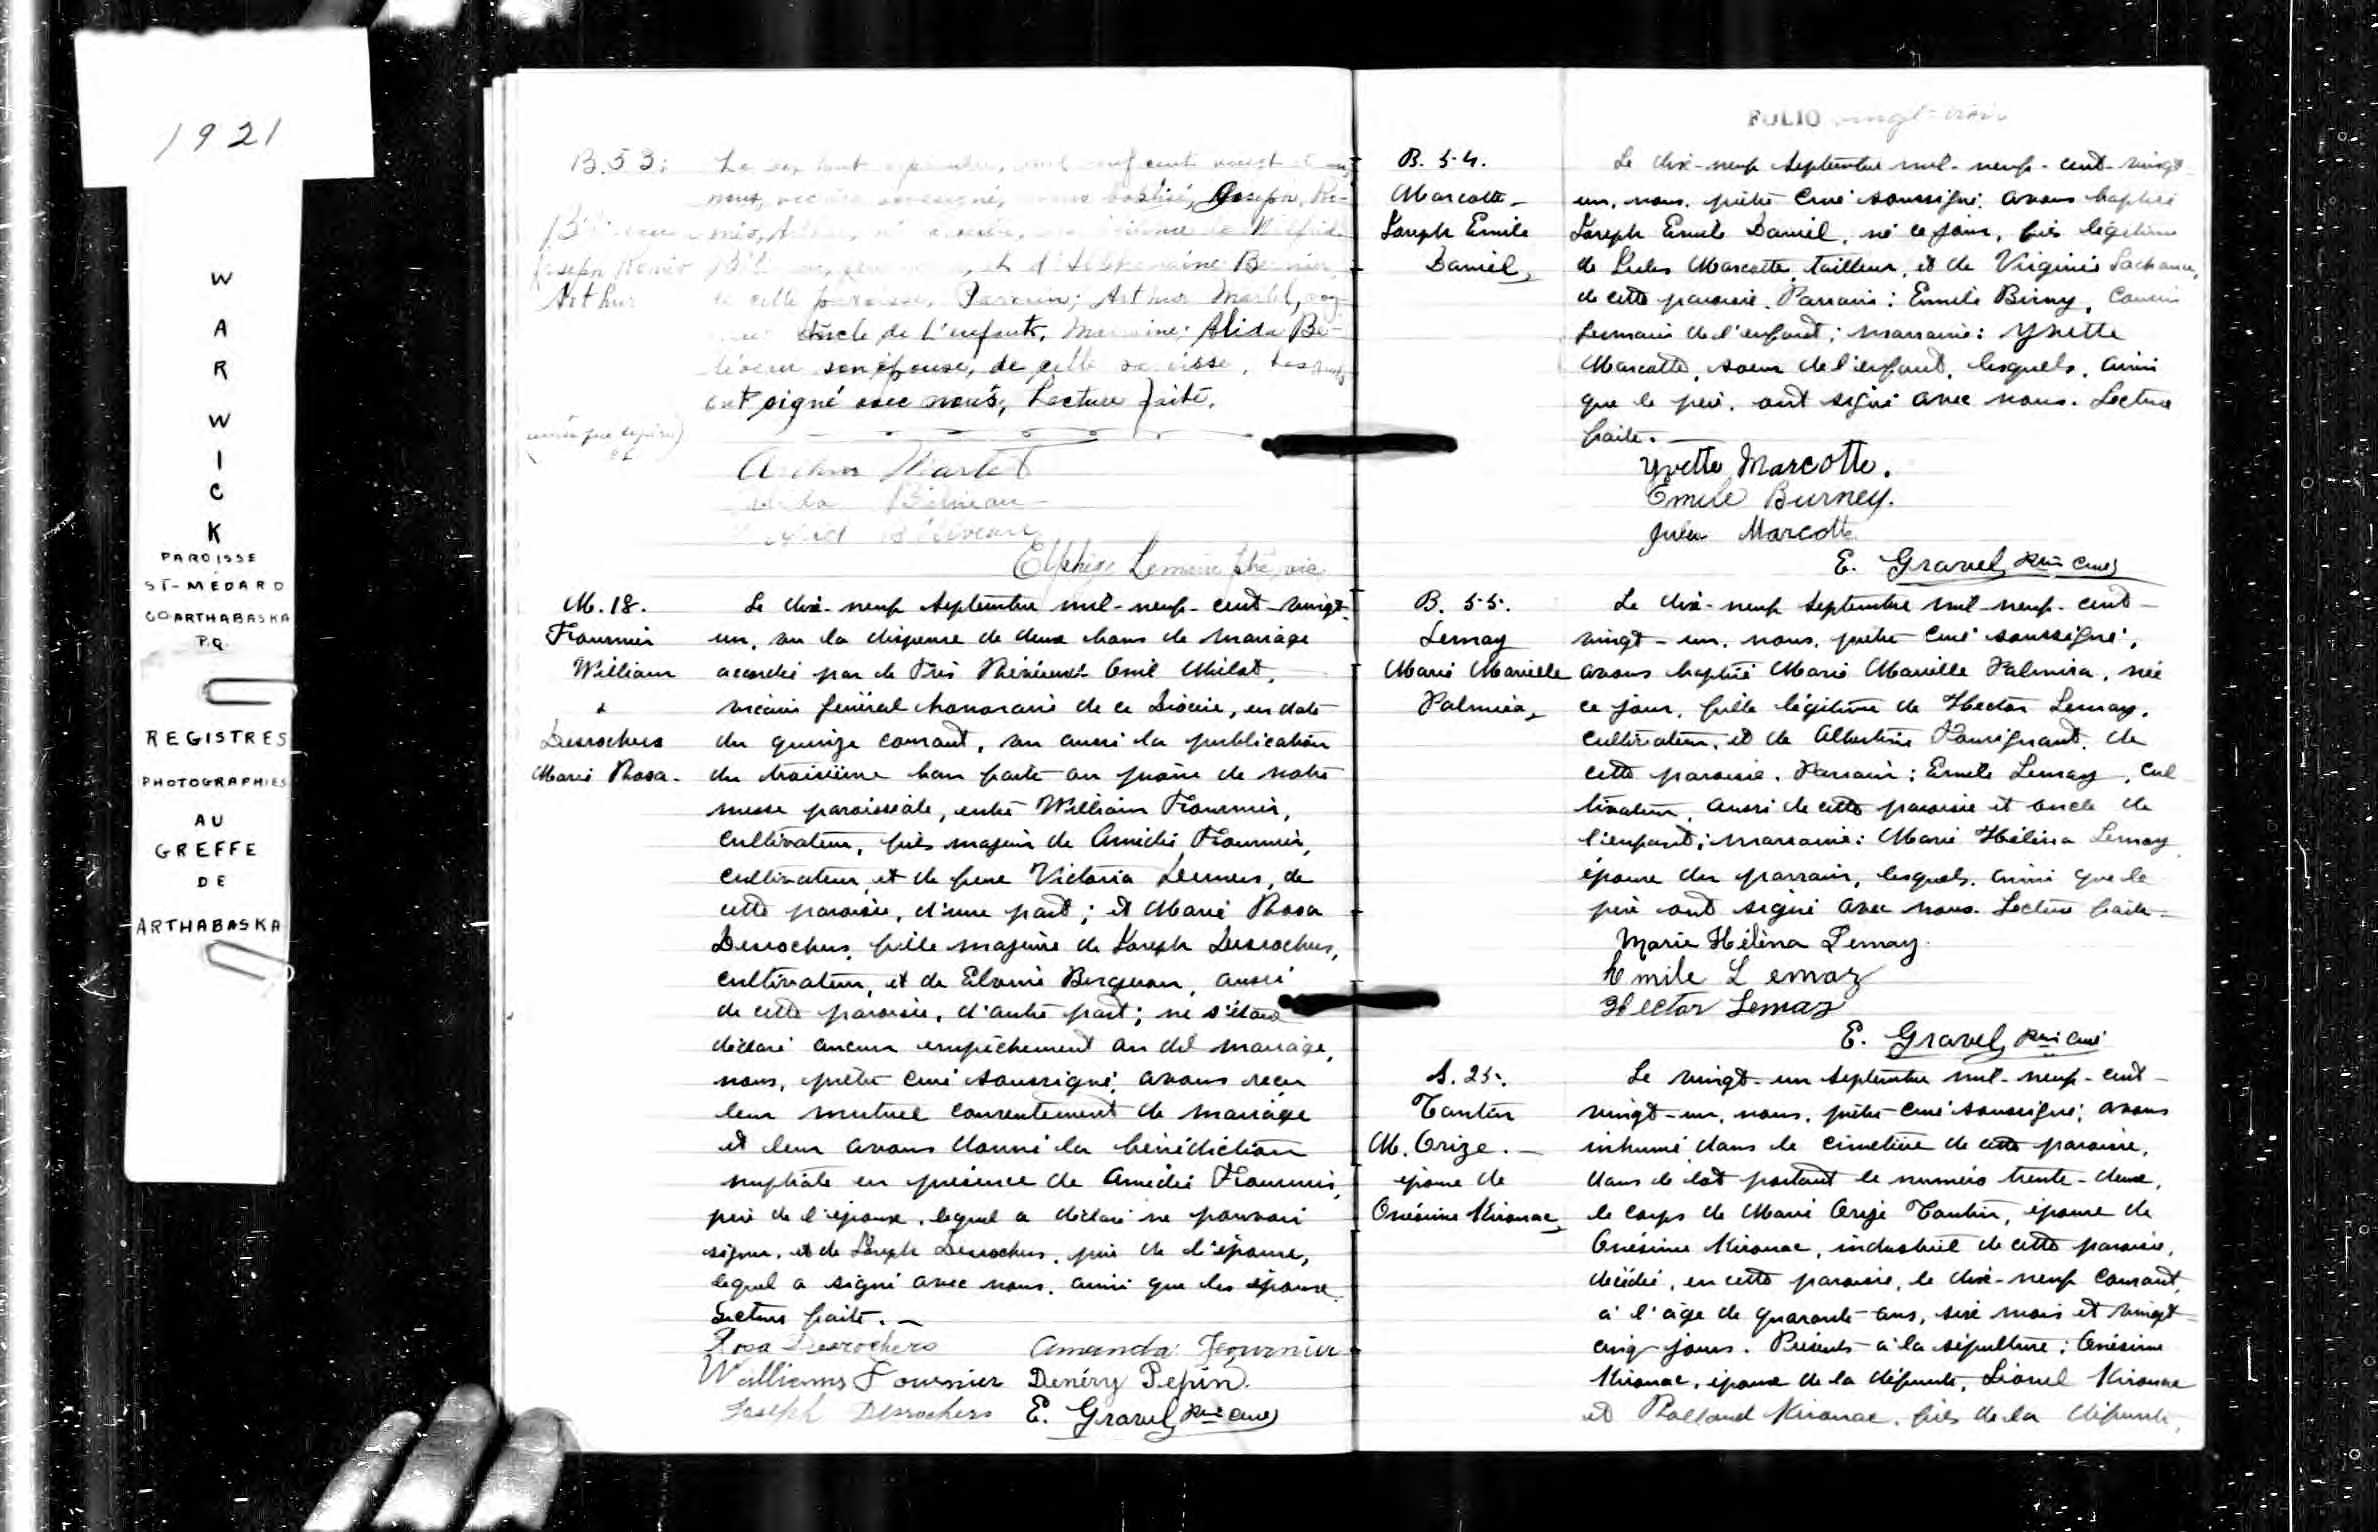 1921
WARWICK
PAROISSE
ST-MÉDARD
CO ARTHABASKA
P.Q.
REGISTRES
PHOTOGRAPHIES
AU
GREFFE
DE
ARTHABASKA
B.53:
Joseph Roméo
Arthur
nous, baptisé, Joseph, Ro-
et d'
de cette paroisse, Parrain; Arthur Martel,
oncle de l'enfant, Marraine: Alida Bé-
liveau son épouse, de cette
ont signé avec nous, Lecture faite.
Arthur Martel
Béliveau
Béliveau
Elphège Lemaire ptre, vic
M. 18.
Fournier
William
&
Desrochers
Marie Rosa.
Le dix-neuf septembre mil-neuf-cent-vingt-
un, vu la dispense de deux bans de mariage
accordée par le Très Révérend Omil Milot,
vicaire général honoraire de ce Diocèse, en date
du quinze courant, vu aussi la publication
du troisième ban faite au prône de notre
messe paroissiale, entre William Fournier,
cultivateur, fils majeur de Amédée Fournier,
cultivateur, et de feue Victoria Demers, de
cette paroisse, d'une part; et Marie Rosa
Desrochers, fille majeure de Joseph Desrochers,
cultivateur, et de Bergeron, aussi
de cette paroisse, d'autre part; ne s'étant
déclaré aucun empêchement au dit mariage,
nous, prêtre curé soussigné, avons reçu
leur mutuel consentement de mariage
et leur avons donné la bénédiction
nuptiale en présence de Amédée Fournier,
père de l'époux, lequel a déclaré ne pouvoir
signer, et de Joseph Desrochers, père de l'épouse,
lequel a signé avec nous, ainsi que les époux.
Lecture faite.
Rosa Desrochers Amanda Fournier
Williams Fournier Denéry Pepin.
Joseph Desrochers E. Gravel, Ptre Curé
FOLIO vingt-trois
B. 54.
Marcotte
Joseph Emile
Daniel,
Le dix-neuf septembre mil-neuf-cent-vingt-
un, nous, prêtre curé soussigné, avons baptisé
Joseph Emile Daniel, né ce jour, fils légitime
de Jules Marcotte, tailleur, et de Virginie Lachance,
de cette paroisse. Parrain: Emile Birny, cousin
germain de l'enfant; marraine: Yvette
Marcotte, soeur de l'enfant, lesquels, ainsi
que le père, ont signé avec nous. Lecture
faite.
Yvette Marcotte.
Emile Burney.
Jules Marcotte
E. Gravel, Ptre Curé
B. 55.
Lemay
Marie Marielle
Palmira,
Le dix-neuf septembre mil-neuf-cent-
vingt-un, nous, prêtre curé soussigné,
avons baptisé Marie Marielle Palmira, née
ce jour, fille légitime de Hector Lemay,
cultivateur, et de Albertine Tourignant, de
cette paroisse. Parrain: Emile Lemay, cul
tivateur, aussi de cette paroisse et oncle de
l'enfant; marraine: Marie Hélèna Lemay
épouse du parrain, lesquels, ainsi que le
père ont signé avec nous. Lecture faite.
Marie Hélèna Lemay.
Emile Lemay
Hector Lemay
E. Gravel, Ptre Curé
S. 25.
Cantin
M. Orize.
épouse de
Onésime Kirouac,
Le vingt-un septembre mil-neuf-cent-
vingt-un, nous, prêtre-curé soussigné, avons
inhumé dans le cimetière de cette paroisse,
dans le lot portant le numéro trente-deux,
le corps de Marie Orize Cantin, épouse de
Onésime Kirouac, industriel de cette paroisse,
décédée, en cette paroisse, le dix-neuf courant,
à l'âge de quarante-ans, six mois et vingt-
cinq jours. Présents à la sépulture: Onésime
Kirouac, époux de la défunte, Lionel Kirouac
et Rolland Kirouac, fils de la défunte,